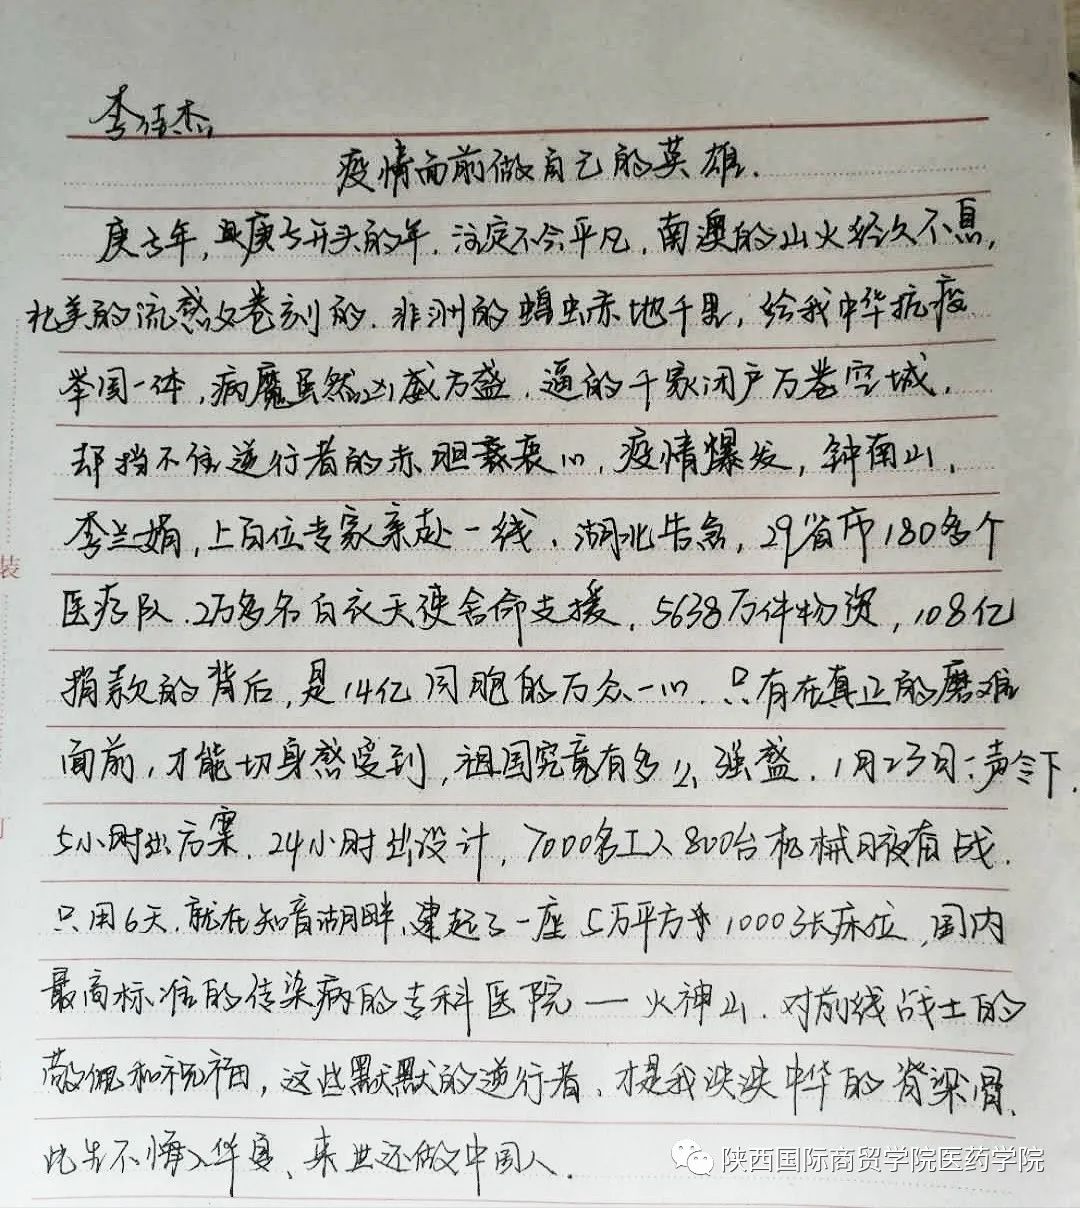 李佳杰
疫情面前做自己的英雄.
庚子年,且庚子开头的年.注定不会平凡.南澳的山火经久不息,
北美的流感 卷刻的.非洲的蝗虫赤地千里,给我中华抗疫
举国一体,病魔虽然凶威方盛.逼的千家闭户万巷空城.
却挡不住逆行者的赤胆 衷心.疫情爆发,钟南山.
李兰娟,上百位专家亲赴一线.湖北告急,29省市180多个
医疗队.2万多名白衣天使舍命支援.5638万件物资,108亿
捐款的背后,是14亿同胞的万众一心.只有在真正的磨难
面前,才能切身感受到,祖国究竟有多么强盛.1月23日一声令下.
5小时出方案.24小时出设计,7000名工人800台机械日夜奋战.
只用6天.就在知音湖畔,建起了一座5万平方米1000张床位,国内
最高标准的传染病的专科医院—火神山.对前线战士的
敬佩和祝福,这些默默的逆行者、才是我泱泱中华的脊梁骨.
此生不悔入华夏、来世还做中国人.
装
订
陕西国际商贸学院医药学院